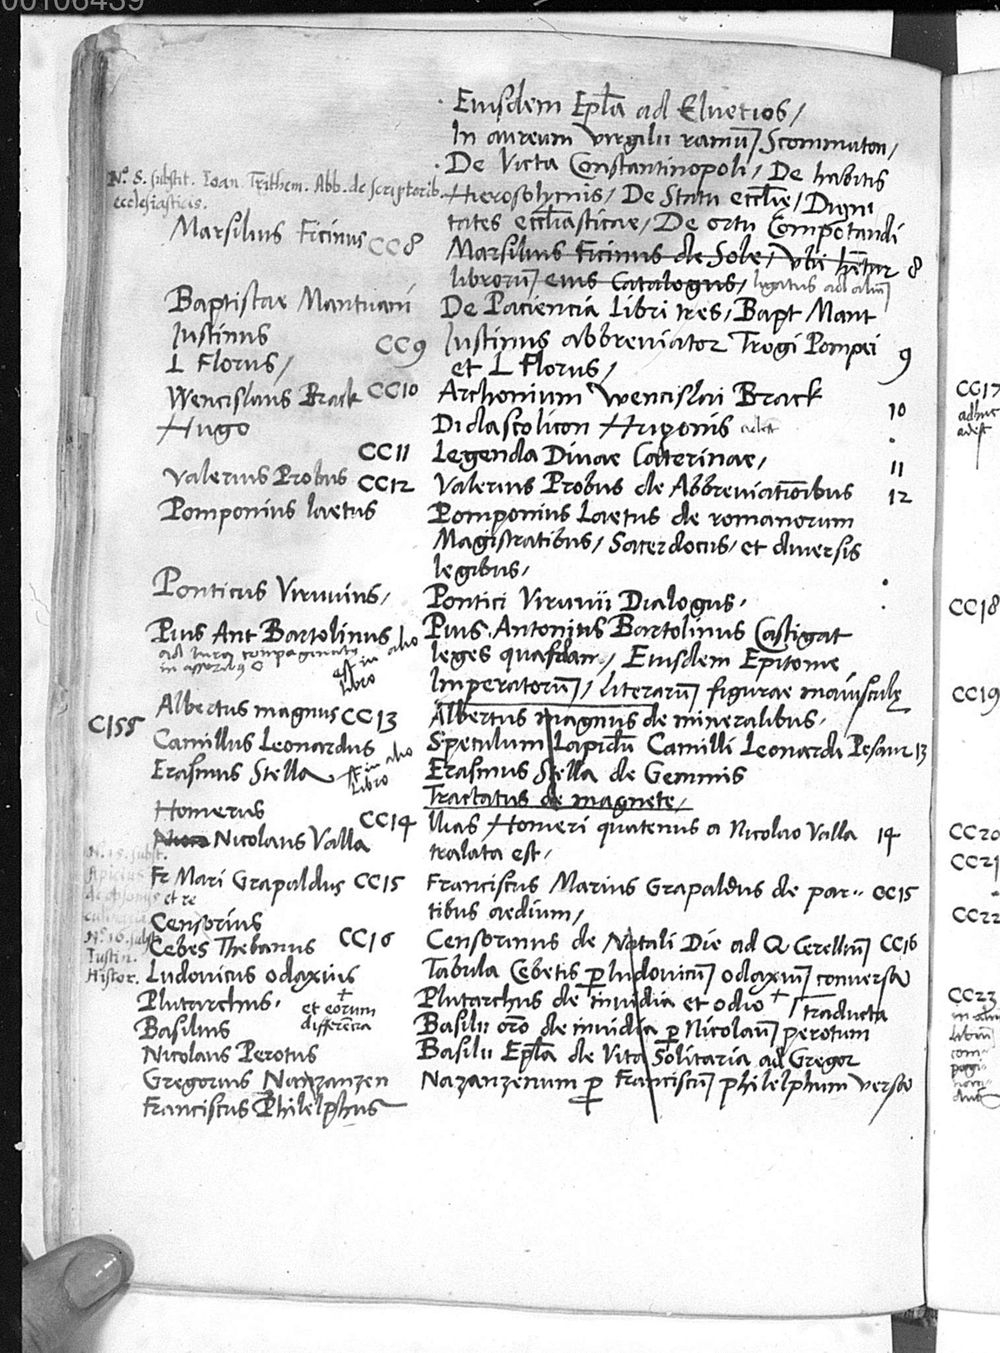 00106439
Eiusdem Epl̄a ad Eluetios /
In aureum Virgilii ramū / Scommaton /
De Victa Constantinopoli / De habitis
Nº 8. substit. Ioan. Trithem. Abb. de scriptorib. Hierosolymis / De Statu eccl̄ie / Digni
ecclesiasticis.
tates eccl̄iasticae / De ortu Compotandi
Marsilius Ficinus CC8 Marsilius Ficinus de Sole / Vbi hn̄tur 8
librorū eius Catalogus / ligatus ad aliū
Baptistae Mantuani De Paciencia Libri tres / Bapt Mant
Justinus CC9 Justinus abbreviator Trogi Pompei 9
L Florus / et L Florus /
Wencislaus Brack CC10 Archonium Wencislai Brack 10
Hugo Didascolicon Hugonis
CC11 Legenda Diuae Catterinae / 11
Valerius Probus CC12 Valerius Probus de Abbreviatiōibus 12
Pomponius laetus Pomponius Laetus de romanorum
Magistratibus / Sacerdociis / et diuersis
legibus /
Ponticus Virunius / Pontici Virunii Dialogus /
Pius Ant Bartolinus Pius Antonius Bartolinus Castigat
est in alio libro leges quasdam / Eiusdem Epitome
Imperatorū / Literarū figurae maiusculę
Albertus magnus CC13 Albertus magnus de mineralibus /
C155
Camillus Leonardus Speculum Lapidū Camilli Leonardi Pesaur 13
Erasmus Stella est in alio libro Erasmus Stella de Gemmis
Tractatus de magnete /
Homerus CC14 Ilias Homeri quatenus a Nicolao Valla 14
Nicolaus Valla tralata est /
Nº 15. subst.
Apicius
et re
Fr Mari Grapaldus CC15 Franciscus Marius Grapaldus de par-- CC15
tibus aedium /
Censorius
Nº 16. subst.
Iustin.
Histor.
Cebes Thebanus CC16 Censorinus de Natali Die ad Q Cerelliū CC16
Ludovicus odaxius Tabula Cebetis p ludouicū odaxiū conversa
Plutarchus / et eorum differēcia Plutarchus de inuidia et odio / traducta
Basilius Basilii orō de inuidia p Nicolaū perotum
Nicolaus Perotus Basilii Epl̄a de Vita Solitaria ad Gregor
Gregorius Nanzanzen Nazanzenum p Franciscū philelphum versae
Franciscus Philelphus
CC17
adhuc
adest
CC18
CC19
CC20
CC21
CC22
CC23